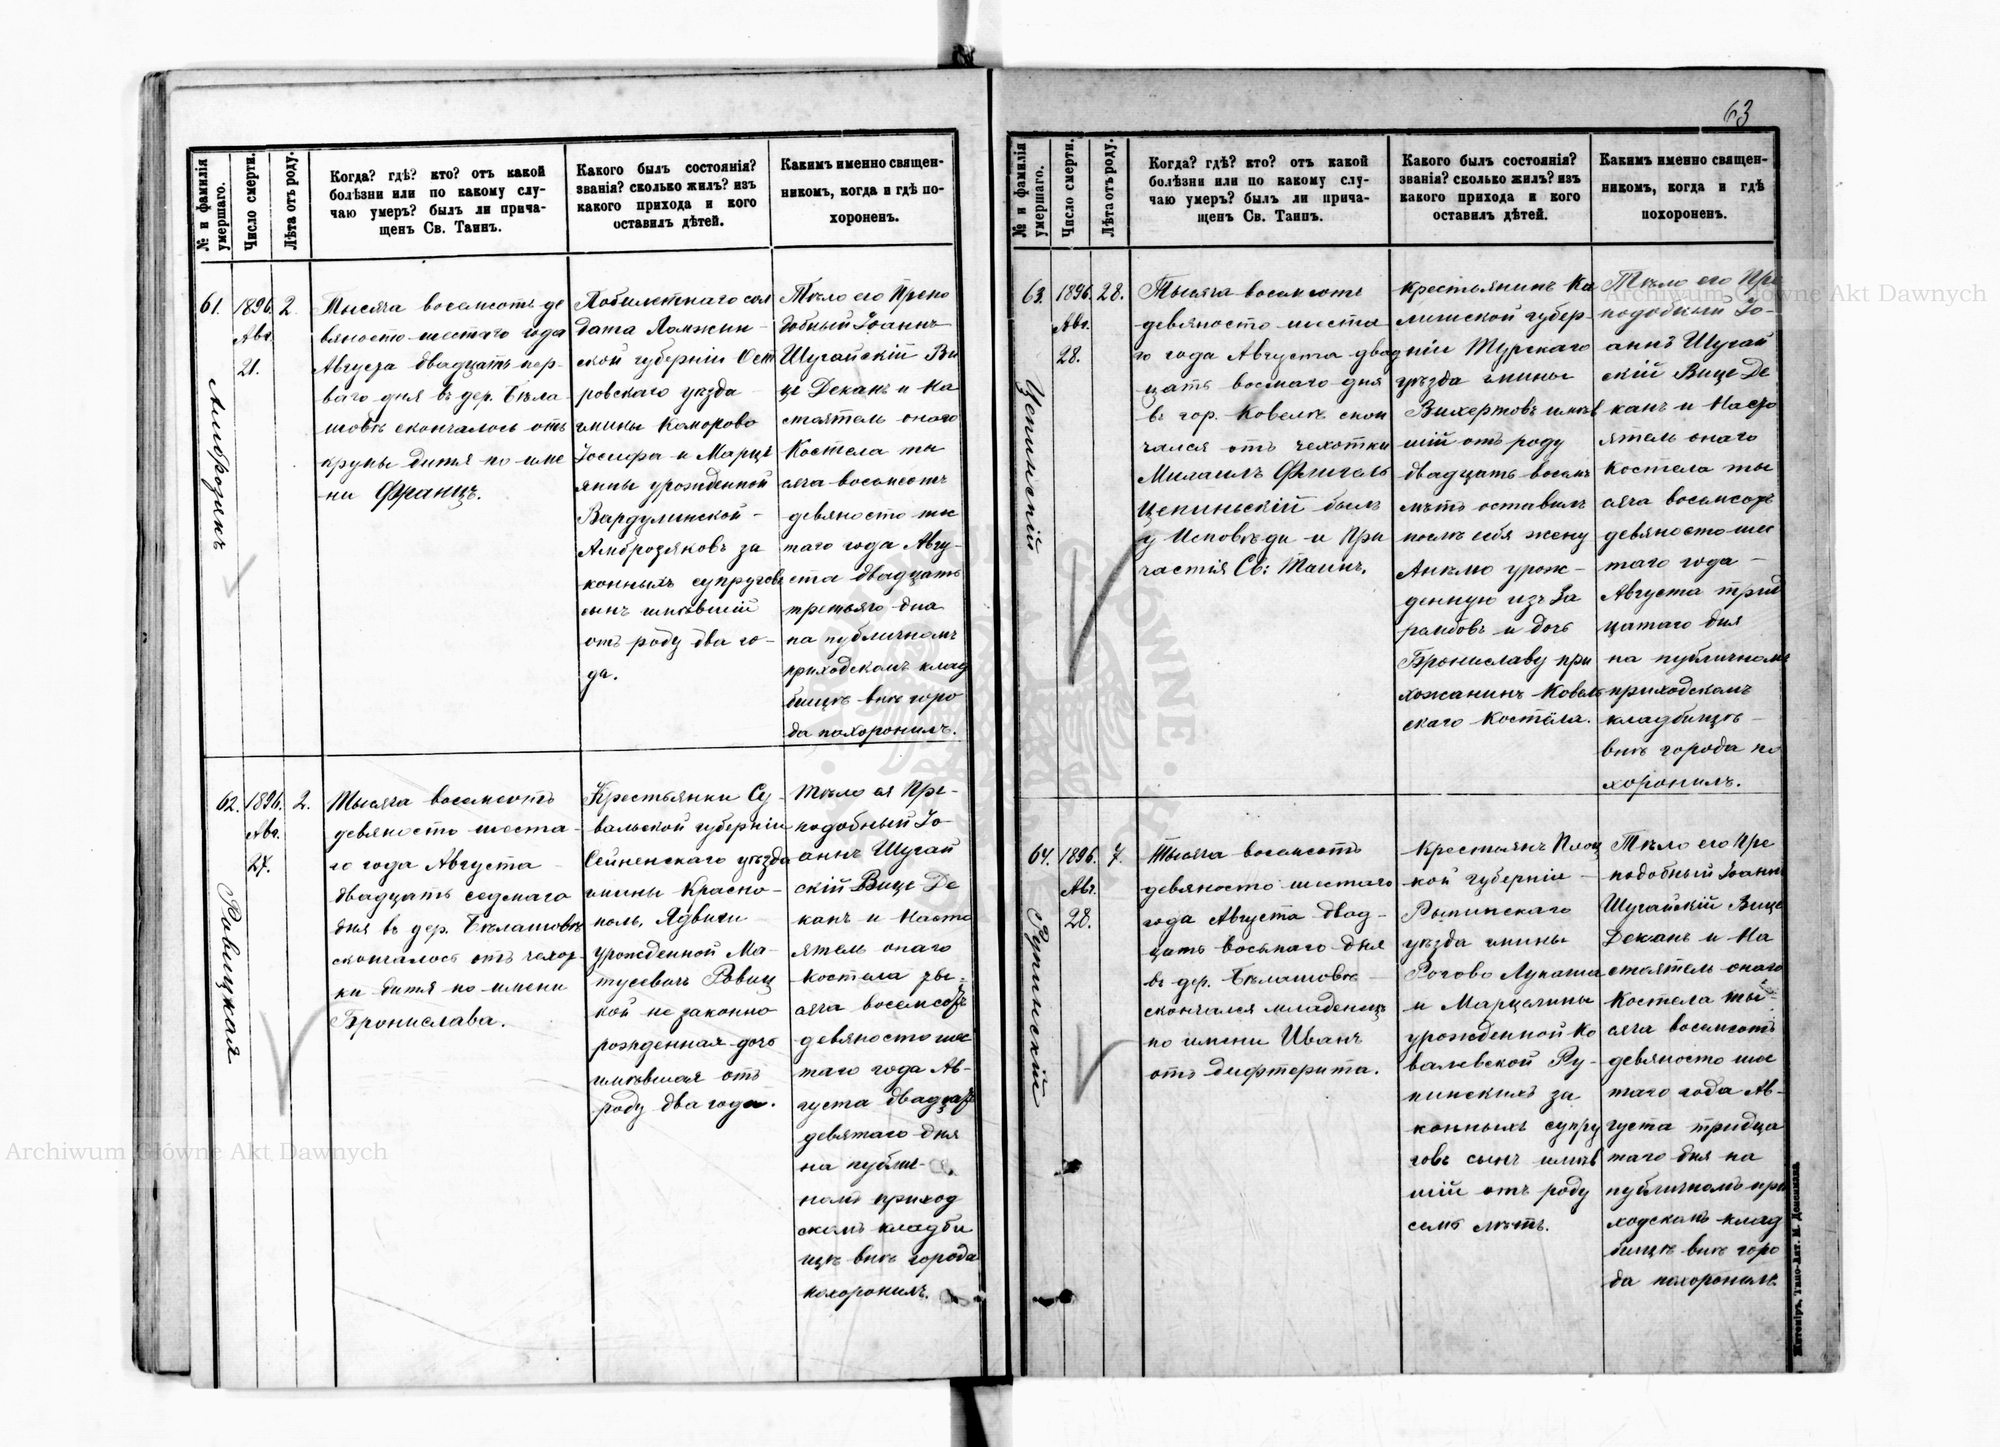 63
№ и фамилія умершаго.
Число смерти.
Лѣта отъ роду.
Когда? гдѣ? кто? отъ какой
болѣзни или по какому слу-
чаю умеръ? былъ ли прича-
щенъ Св. Таинъ.
Какого былъ состоянія?
званія? сколько жилъ? изъ
какого прихода и кого
оставилъ дѣтей.
Какимъ именно священ-
никомъ, когда и гдѣ по-
хороненъ.
61.
Амброзякъ
1896.
Авг.
21.
2.
Тысяча восемсотъ де
вяносто шестаго года
Августа двадцать пер-
ваго дня въ дер. Бѣла-
шовкѣ скончалось отъ
крупы дитя по име
ни Францъ.
Побилетнаго сол
дата Ломжин-
ской губерніи Ост
ровскаго уѣзда
гмины Коморово
Іосифа и Марці
янны урожденной
Вардулинской -
Амброзяковъ за
конныхъ супруговъ
сынъ имѣвшій
отъ роду два го-
да.
Тѣло его Препо
добный Іоаннъ
Шугайскій Ви
це Деканъ и На
стоятель онаго
Костела ты
сяча восемсотъ
девяносто шес
таго года Авгу-
ста двадцать
третьяго дна
на публичномъ
приходскомъ клад
бищѣ внѣ горо
да похоронилъ.
62.
Ровицкая
1896.
Авг.
27.
2.
Тысяча восемсотъ
девяносто шеста-
го года Августа
двадцать седмаго
дня въ дер. Бѣлашовкѣ
скончалось отъ чехот-
ки дитя по имени
Бронислава.
Крестьянки Су-
вальской губерніи
Сейненскаго уѣзда
гмины Красно-
поль, Ядвиги
урожденной Ма-
тусевичъ Ровиц
кой не законно
рожденная дочь
имѣвшая отъ
роду два года.
Тѣло ея Пре-
подобный Іо-
аннъ Шугай
скій Вице Де
канъ и Насто
ятель онаго
Костела ты-
сяча восемсотъ
девяносто шес
таго года Ав-
густа двадцать
девятаго дня
на публич-
номъ приход
скомъ кладби
щѣ внѣ города
похоронилъ.
№ и фамилія умершаго.
Число смерти.
Лѣта отъ роду.
Когда? гдѣ? кто? отъ какой
болѣзни или по какому слу-
чаю умеръ? былъ ли прича-
щенъ Св. Таинъ.
Какого былъ состоянія?
званія? сколько жилъ? изъ
какого прихода и кого
оставилъ дѣтей.
Какимъ именно священ-
никомъ, когда и гдѣ
похороненъ.
63.
Цепинскій
1896.
Авг.
28.
28.
Тысяча восемсотъ
девяносто шеста
го года Августа двад
цать восмаго дня
въ гор. Ковелѣ скон
чался отъ чехотки
Михаилъ Флигель
Цепиньскій былъ
у Исповѣди и При
частія Св: Таинъ.
Крестьянинъ Ка
лишской губер-
ніи Турекаго
уѣзда гмины
Вихертовъ имѣв
шій отъ роду
двадцать восемь
лѣтъ оставилъ
послѣ себя жену
Анѣлю урож-
денную изъ За
рембовъ и дочь
Брониславу при
хожанинъ Ковель
скаго Костёла.
Тѣло его Пре
подобный Іо-
аннъ Шугай
скій Вице Де
канъ и Насто
ятель онаго
Костела ты
сяча восемсотъ
девяносто шес
таго года -
Августа трид
цатаго дня
на публичномъ
приходскомъ
кладбищѣ -
внѣ города по
хоронилъ.
64.
Рупинскій
1896.
Авг.
28.
7.
Тысяча восемсотъ
девяносто шестаго
года Августа двад-
цать восьмаго дня
въ дер. Бѣлашовкѣ
скончался младенецъ
по имени Иванъ
отъ дифтерита.
Крестьянъ Плоц
кой губерніи -
Рыпинскаго
уѣзда гмины
Рогово Лукаша
и Марцелины
урожденной Ко
валевской Ру-
пинскихъ за
конныхъ супру
говъ сынъ имѣв
шій отъ роду
семь лѣтъ.
Тѣло его Пре
подобный Іоаннъ
Шугайскій Вице
Деканъ и На
стоятель онаго
Костела ты-
сяча восемсотъ
девяносто шес
таго года Ав-
густа тридца
таго дня на
публичномъ при
ходскомъ клад
бищѣ внѣ горо
да похоронилъ.
Житоміръ, Типо-Лит. М. Дененмана.
Archiwum Główne Akt Dawnych
Archiwum Główne Akt Dawnych